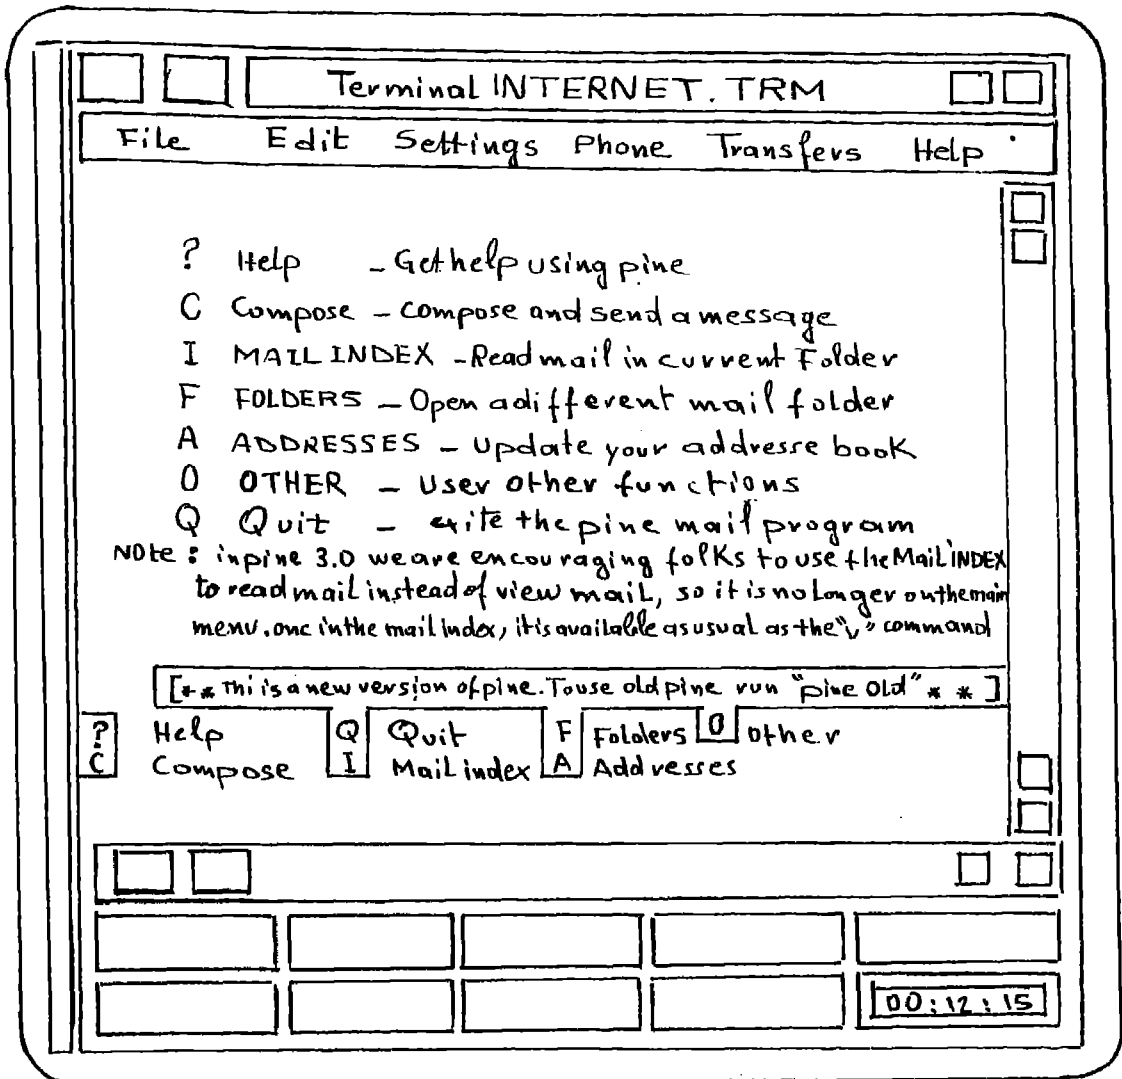 Terminal INTERNET.TRM
File Edit Settings Phone Transfers Help
? Help - Get help using pine
C Compose - compose and send a message
I MAIL INDEX - Read mail in current Folder
F FOLDERS - Open a different mail folder
A ADDRESSES - Update your addresse book
O OTHER - User other functions
Q Quit - exite the pine mail program
Note : in pine 3.0 we are encouraging folks to use the Mail INDEX
to read mail instead of view mail, so it is no longer on the main
menu. onc in the mail index, it is available as usual as the "v" command
[* * Thi is a new version of pine. To use old pine run "pine old" * * ]
? Help Q Quit F Folders O other
C Compose I Mail index A Addresses
00:12:15